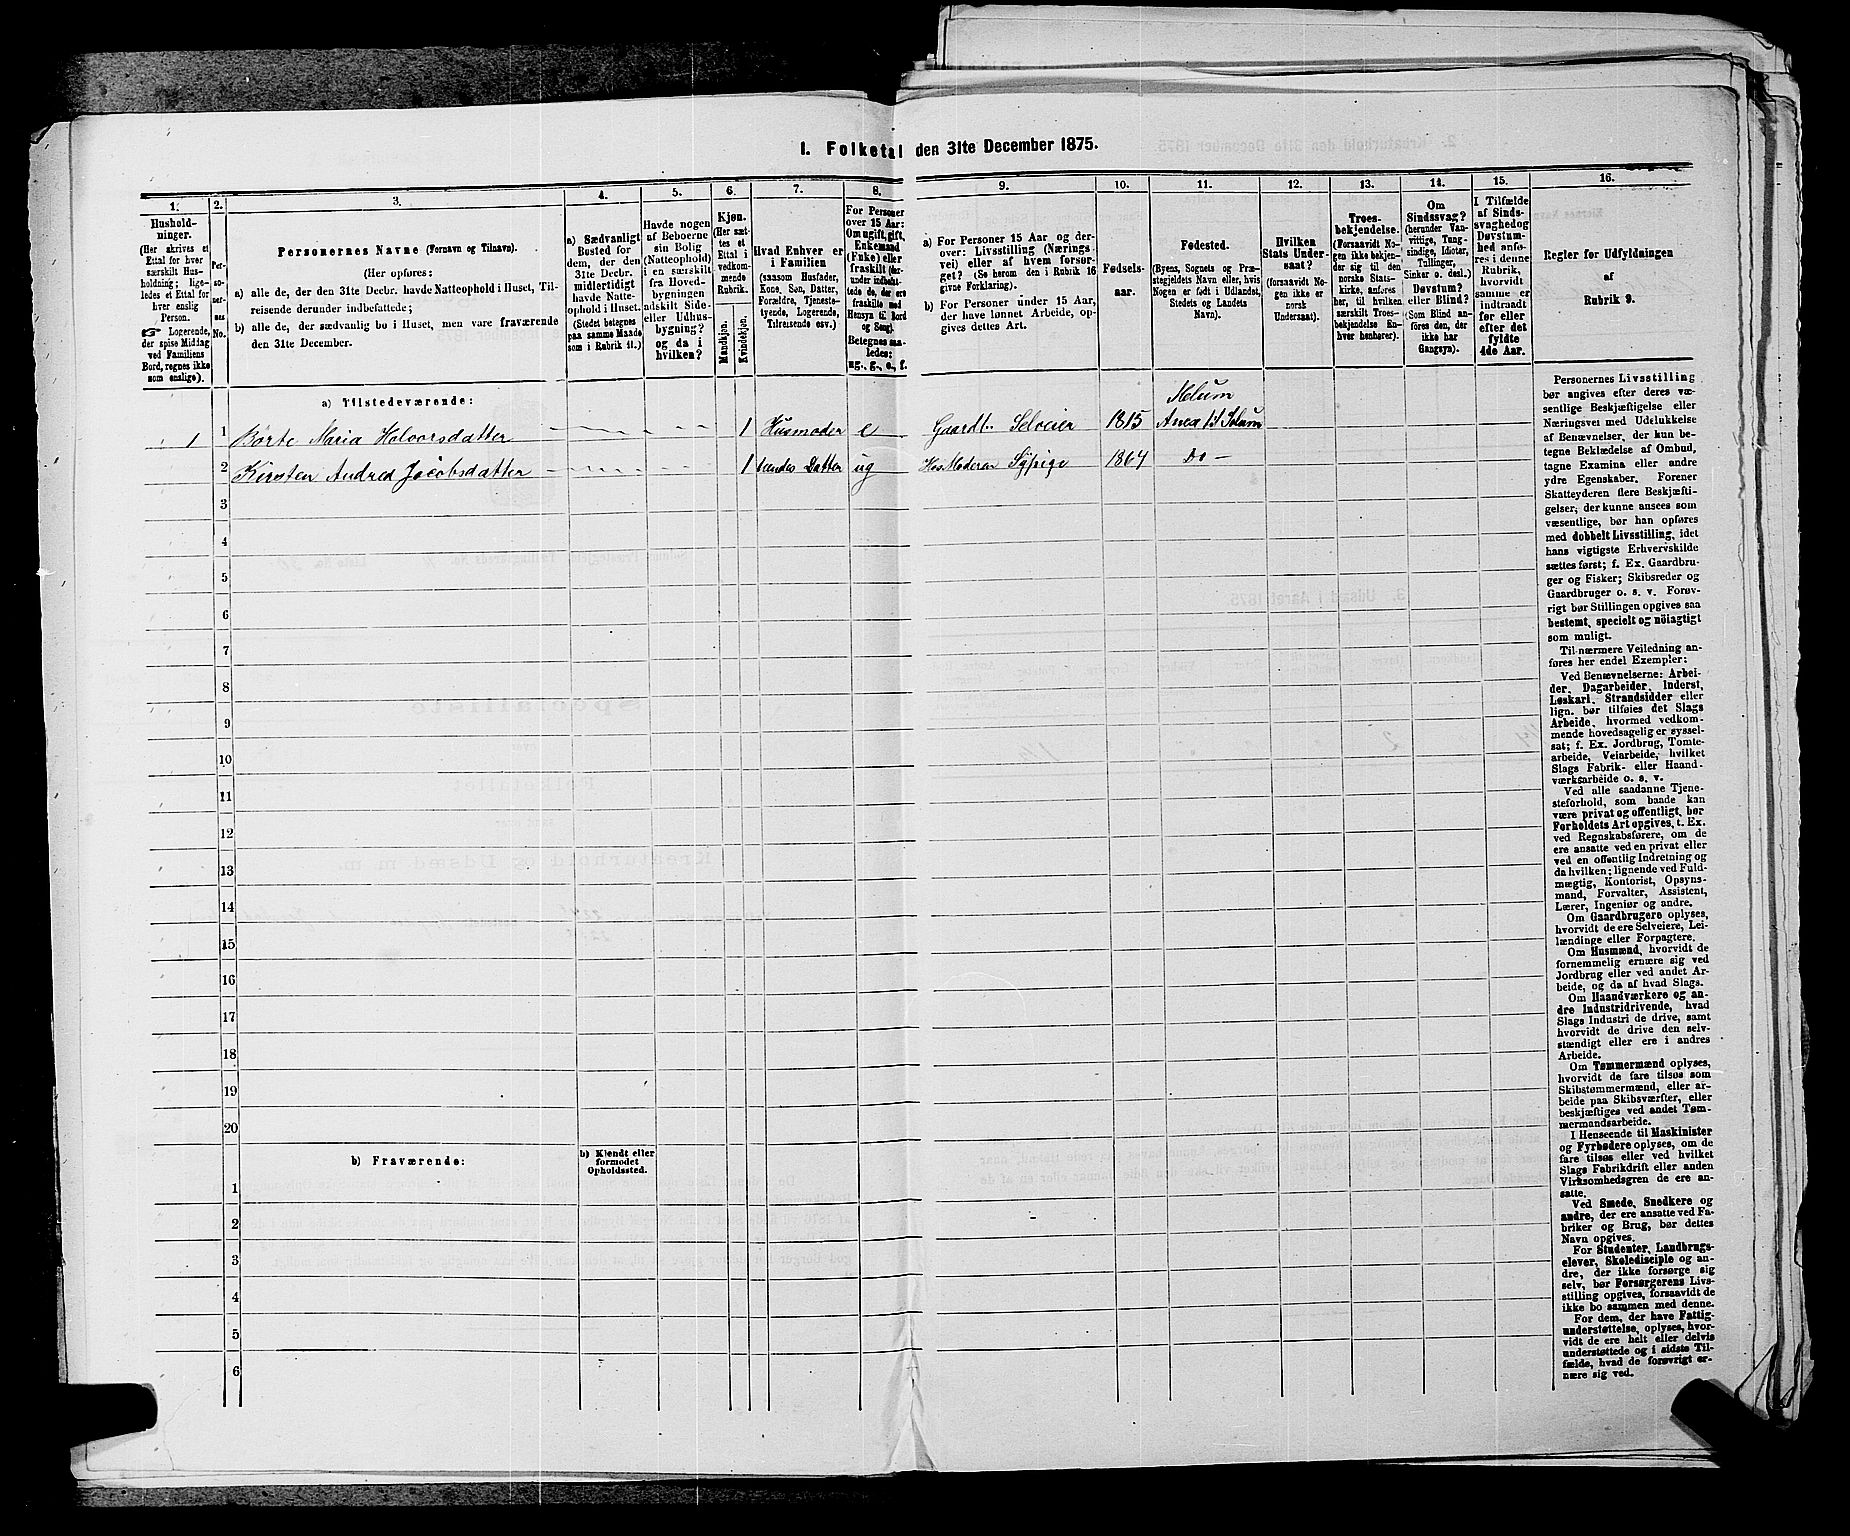 1. Folketal den 31te December 1875.
1.
2.
3.
4.
5.
6.
7.
8.
9.
10.
11.
12.
13.
14.
15.
16.
Hushold-
ninger.
(Her skrives et
Ettal for hver
særskilt Hus-
holdning; lige-
ledes et Ettal for
hver enslig
Person.
☞ Logerende,
der spise Middag
ved Familiens
Bord, regnes ikke
som enslige).
Per-
so-
ner-
nes
No.
Personernes Navne (Fornavn og Tilnavn).
(Her opføres:
a) alle de, der den 31te Decbr. havde Natteophold i Huset, Til-
reisende derunder indbefattede;
b) alle de, der sædvanlig bo i Huset, men vare fraværende
den 31te December.
a) Sædvanligt
Bosted for
dem, der den
31te Decbr.
midlertidigt
havde Natte-
ophold i Huset.
(Stedet betegnes
paa samme Maade
som i Rubrik 11.)
Havde nogen
af Beboerne
sin Bolig
(Natteophold)
i en særskilt
fra Hoved-
bygningen
adskilt Side-
eller Udhus-
bygning?
og da i
hvilken?
Kjøn.
(Her sæt-
tes et
Ettal i
vedkom-
mende
Rubrik.
Mandkjøn.
Kvindekjøn.
Hvad Enhver er
i Familien
(saasom Husfader,
Kone, Søn, Datter,
Forældre, Tjeneste-
tyende, Logerende,
Tilreisende osv.)
For Personer
over 15 Aar:
Om ugift, gift,
Enkemand
(Enke) eller
fraskilt (her-
under indbefat-
tede de, der ere
fraskilte med
Hensyn til Bord
og Seng).
Betegnes saa-
ledes:
ug., g., e., f.
a) For Personer 15 Aar og der-
over: Livsstilling (Nærings-
vei) eller af hvem forsør-
get? (Se herom den i Rubrik 16
givne Forklaring).
b) For Personer under 15 Aar,
der have lønnet Arbeide, op-
gives dettes Art.
Fødsels-
aar.
Fødested.
(Byens, Sognets og Præ-
stegjeldets Navn eller, hvis
Nogen er født i Udlandet,
Stedets og Landets
Navn).
Hvilken
Stats Under-
saat?
(forsaavidt No-
gen ikke er
norsk
Undersaat).
Troes-
bekjendelse.
(Forsaavidt No-
gen ikke bekjen-
der sig til den
norske Stats-
kirke, anføres
her, til hvilken
særskilt Troes-
bekjendelse En-
hver henhører).
Om
Sindssvag?
(herunder Van-
vittige, Tung-
sindige, Idioter,
Tullinger,
Sinker o. desl.)
Døvstum?
eller Blind?
(Som Blind an-
føres den, der
ikke har
Gangsyn).
I Tilfælde
af Sinds-
svaghed og
Døvstum-
hed anfø-
res i denne
Rubrik,
hvorvidt
samme er
indtraadt
før eller
efter det
fyldte
4de Aar.
Regler for Udfyldningen
af
Rubrik 9.
a) Tilstedeværende:
Melum
1 1 Børte Maria Halvorsdatter 1 Husmoder e Gaardb. Selveier 1815
2 Kirsten Andrea Jacobsdatter 1 hendes Datter ug Hos Moderen Sypige 1864 Do -
3
4
5
6
7
8
9
10
11
12
13
14
15
16
17
18
19
20
b) Fraværende:
b) Kjendt eller
formodet
Opholdssted.
1
2
3
4
5
6
Personernes Livsstilling
bør angives efter deres væ-
sentlige Beskjæftigelse eller
Næringsvei med Udelukkelse
af Benævnelser, der kun be-
tegne Beklædelse af Ombud,
tagne Examina eller andre
ydre Egenskaber. Forener
Skatteyderen flere Beskjæfti-
gelser, der kunne ansees som
væsentlige, bør han opføres
med dobbelt Livsstilling, idet
hans vigtigste Erhvervskilde
sættes først; f. Ex. Gaardbru-
ger og Fisker; Skibsreder og
Gaardbruger o. s. v. Forøv-
rigt bør Stillingen opgives saa
bestemt, specielt og nöiagtigt
som muligt.
Til nærmere Veiledning an-
føres her endel Exempler:
Ved Benævnelserne: Arbei-
der, Dagarbeider, Inderst,
Løskarl, Strandsidder eller
lign. bør tilføies det Slags
Arbeide, hvormed vedkom-
mende hovedsagelig er syssel-
sat; f. Ex. Jordbrug, Tomte-
arbeide, Veiarbeide, hvilket
Slags Fabrik- eller Haand-
værksarbeide o. s. v.
Ved alle saadanne Tjene-
steforhold, som baade kan
være privat og offentligt, bør
Forholdets Art opgives, t. Ex.
ved Regnskabsførere, om de
ere ansatte ved en privat eller
ved en offentlig Indretning og
da hvilken; lignende ved Fuld-
mægtig, Kontorist, Opsyns-
mand, Forvalter, Assistent,
Lærer, Ingeniør og andre.
Om Gaardbrugere oplyses,
hvorvidt de ere Selveiere, Lei-
lændinge eller Forpagtere.
Om Husmænd, hvorvidt de
fornemmelig ernære sig ved
Jordbrug eller ved andet Ar-
beide, og da af hvad Slags.
Om Haandværkere og an-
dre Industridrivende, hvad
Slags Industri de drive, samt
hvorvidt de drive den selv-
stændigt eller ere i andres
Arbeide.
Om Tømmermænd oplyses,
hvorvidt de fare tilsøs som
Skibstømmermænd, eller ar-
beide paa Skibsværfter, eller
beskjæftiges ved andet Tøm-
mermandsarbeide.
I Henseende til Maskinister
og Fyrbødere oplyses, om de
fare tilsøs eller ved hvilket
Slags Fabrikdrift eller anden
Virksomhedsgren de ere an-
satte.
Ved Smede, Snedkere og
andre, der ere ansatte ved Fa-
briker og Brug, bør dettes
Navn opgives.
For Studenter, Landbrugs-
elever, Skoledisciple og an-
dre, der ikke forsørge sig
selv, bør Forsørgerens Livs-
stilling opgives, forsaavidt de
ikke bo sammen med denne.
For dem, der have Fattig-
understøttelse, oplyses, hvor-
vidt de ere helt eller delvis
understøttede og i sidste Til-
fælde, hvad de forøvrigt er-
nære sig ved.